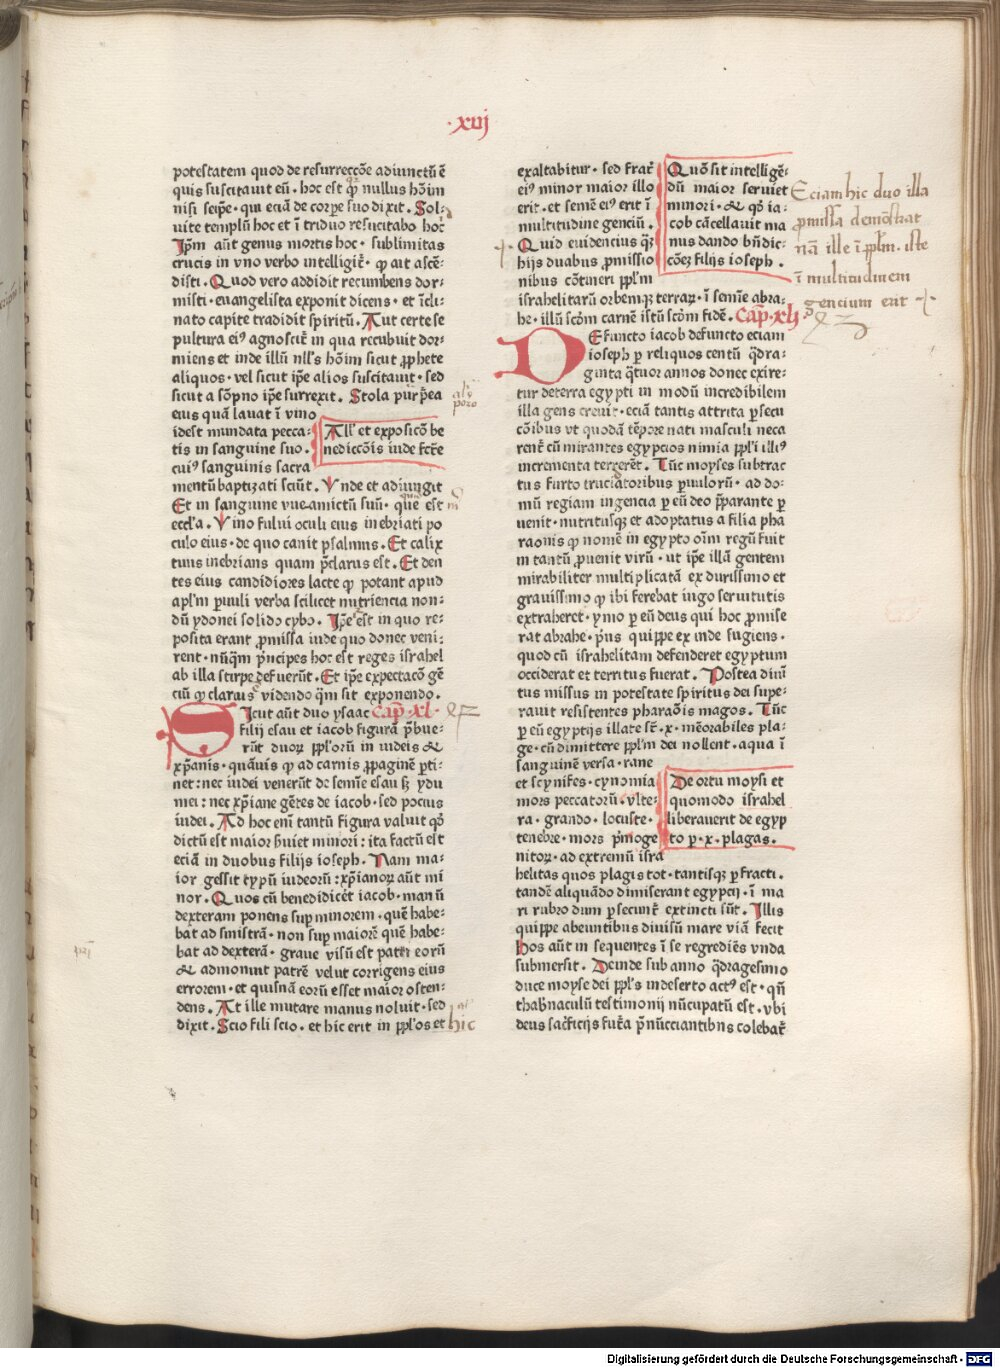 ·xvij
potestatem quod de resurreccōe adiunctū ē
quis suscitauit eū · hoc est qꝛ nullus hōim
nisi seip̄e · qui eciā de corpe suo dixit . Sol-
uite templū hoc et ī triduo resuscitabo hoc̄
Ip̄m aūt genus mortis hoc · sublimitas
crucis in vno verbo intelligit̄ · ꝙ ait ascē-
disti . Quod vero addidit recumbens dor-
misti · euangelista exponit dicens · et īcli-
nato capite tradidit spiritū . Aut certe se
pultura eiꝰ agnoscit̄ in qua recubuit dor-
miens et inde illū nll's hōim sicut ꝓphete
aliquos · vel sicut ip̄e alios suscitauit · sed
sicut a sōpno ip̄e surrexit . Stola purp̄ea
eius quā lauat ī vino
idest mundata pecca-
tis in sanguine suo .
cuiꝰ sanguinis sacra
All' et exposicōn be
nediccōis iude fc̄te
mentū baptizati sciūt . Vnde et adiungit
Et in sanguine vue amictū suū · que est
eccl'a . Vino fului oculi eius inebriati po
culo eius · de quo canit psalmus . Et calix
tuus inebrians quam p̄clarus est . Et den
tes eius candidiores lacte ꝙ potant apud
apl'm paruuli verba scilicet nutriencia non-
dū ydonei solido cybo . Ip̄e est in quo re-
posita erant ꝓmissa iude quo donec veni-
rent · nūq̄m p̄ncipes hoc est reges israhel
ab illa stirpe defuerūt . Et ip̄e expectacō gē
ciū ꝙ clarius videndo q̄m sit exponendo .
Sicut aūt duo ysaac Cap̄ · xl ·
filij esau et iacob figurā p̄bue-
rūt duoꝝ ppl'orū in iudeis &
xp̄anis · quāuis ꝙ ad carnis ꝓpaginē ꝑti-
net : nec iudei venerūt de semīe esau sꝫ ydu
mei : nec xp̄iane gētes de iacob · sed pocius
iudei . Ad hoc enī tantū figura valuit qꝫ
dictū est maior ƀuiet minori : ita factū est
eciā in duobus filijs ioseph . Nam ma-
ior gessit typū iudeorū : xp̄ianoꝝ aūt mi
nor . Quos cū benedicēt iacob · manū
dexteram ponens suꝑ minorem · quē habe-
bat ad sinistrā · non suꝑ maiorē quē habe-
bat ad dexterā · graue visū est patri eorū
& admonuit patrē velut corrigens eius
errorem · et quisnā eorū esset maior osten-
dens . At ille mutare manus noluit · sed
dixit . Scio fili scio . et hic erit in ppl'os et hic
exaltabitur · sed frat̄
eiꝰ minor maior illo
erit · et semē eiꝰ erit ī
multitudine genciū .
Quid euidencius qꝫ
hijs duabus ꝓmissio
nibus cōtineri ppl'm
Quō sit intelligē-
dū maior seruiet
minori · & qꝫ ia-
cob cācellauit ma
nus dando bn̄dic-
cōeꝫ filijs ioseph .
Eciam hic duo illa
ꝓmissa demōstrat
nā ille ī ppl'm · iste
ī multitudinem
gencium erit
israhelitarū orbemqꝫ terraꝝ · ī semīe abra-
he · illū scd̄m carnē istū scd̄m fidē . Cap̄ · xlj
Defuncto iacob defuncto eciam
ioseph ꝑ reliquos centū q̄dra-
ginta q̄tuor annos donec exire-
tur de terra egypti in modū incredibilem
illa gens creuit · eciā tantis attrita ꝑsecu
cōibus vt quodā tēpore nati masculi neca
rent̄ cū mirantes egypcios nimia ppl'i illiꝰ
incrementa terrerēt . Tūc moyses subtrac
tus furto truciatoribus ꝑuulorū · ad do-
mū regiam ingencia ꝑ eū deo p̄parante ꝑ
uenit · nutritusqꝫ et adoptatus a filia pha
raonis ꝙ nomē in egypto oīm regū fuit
in tantū ꝓuenit virū · vt ip̄e illā gentem
mirabiliter multiplicatā ex durissimo et
grauissimo ꝙ ibi ferebat iugo seruitutis
extraheret · ymo ꝑ eū deus qui hoc ꝓmise
rat abrahe · p̄us quippe ex inde fugiens ·
quod cū israhelitam defenderet egyptum
occiderat et territus fuerat . Postea diuī
tus missus in potestate spiritus dei supe-
rauit resistentes pharaōis magos . Tūc
ꝑ eū egyptijs illate sūt · x · mēorabiles pla-
ge · cū dimittere ppl'm dei nollent · aqua ī
sanguinē versa · rane
et scynifes · cynomia
mors peccatorū · vlte-
ra · grando · locuste ·
tenebre · mors p̄moge
nitoꝝ · ad extremū isra
De ortu moysi et
quomodo israhel
liberauerit de egyp
to ꝑ · x · plagas .
helitas quos plagis tot · tantisqꝫ ꝑfracti .
tandē aliquādo dimiserant egypcij · ī ma
ri rubro dum ꝑsecunt̄ extincti sūt . Illis
quippe abeuntibus diuisū mare viā fecit
hos aūt in sequentes ī se regrediēs vnda
submersit . Deinde sub anno q̄dragesimo
duce moyse dei ppl's in deserto actꝰ est · qn̄
thab̄naculū testimonij nūcupatū est · vbi
deus sac̄ficijs fut̄a p̄nūcciantibus colebat̄
Digitalisierung gefördert durch die Deutsche Forschungsgemeinschaft - DFG